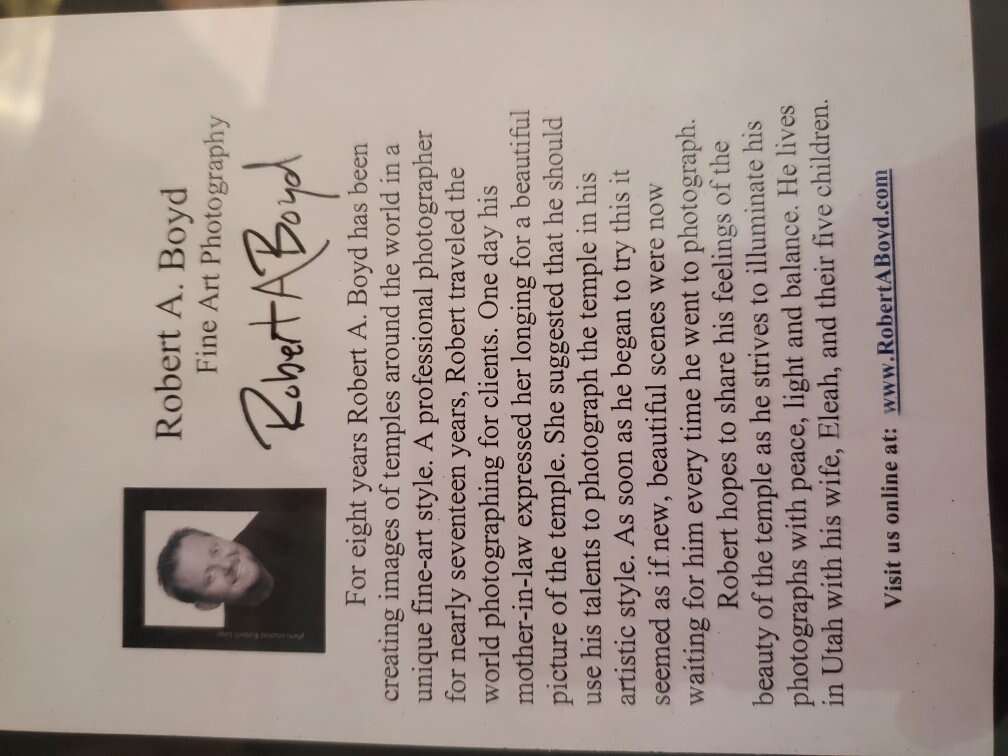 Robert A. Boyd
Fine Art Photography
Robert A Boyd
For eight years Robert A. Boyd has been
creating images of temples around the world in a
unique fine-art style. A professional photographer
for nearly seventeen years, Robert traveled the
world photographing for clients. One day his
mother-in-law expressed her longing for a beautiful
picture of the temple. She suggested that he should
use his talents to photograph the temple in his
artistic style. As soon as he began to try this it
seemed as if new, beautiful scenes were now
waiting for him every time he went to photograph.
Robert hopes to share his feelings of the
beauty of the temple as he strives to illuminate his
photographs with peace, light and balance. He lives
in Utah with his wife, Eleah, and their five children.
Visit us online at: www.RobertABoyd.com